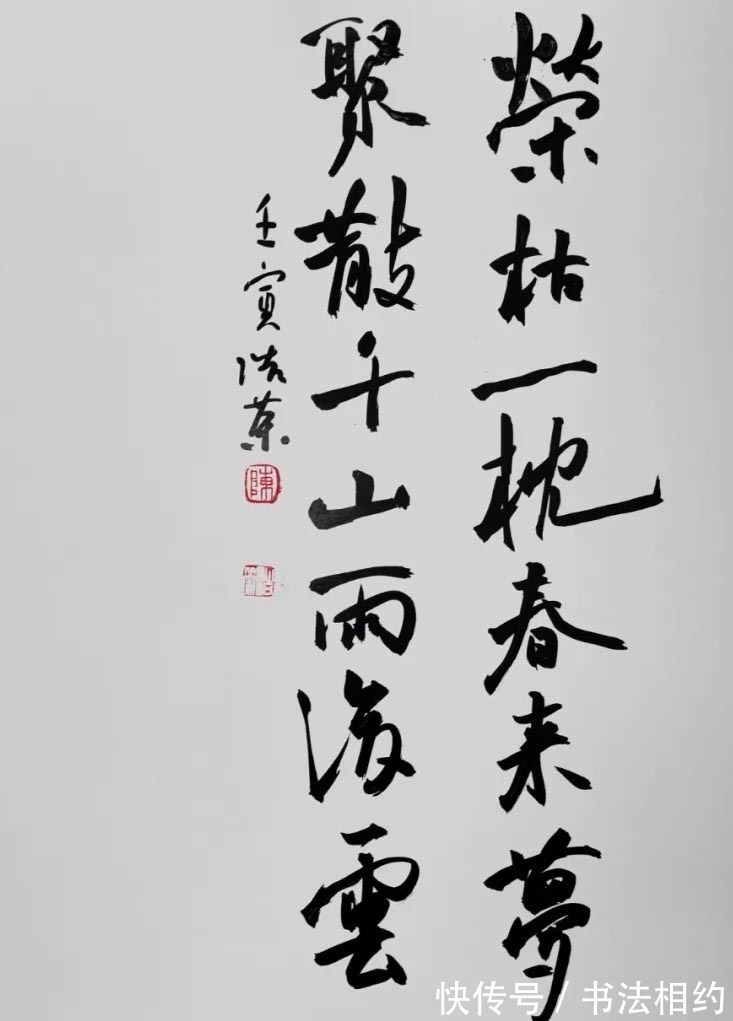 榮枯一枕春来夢
聚散千山雨後雲
壬寅浩葉
陳
快传号 / 书法相约